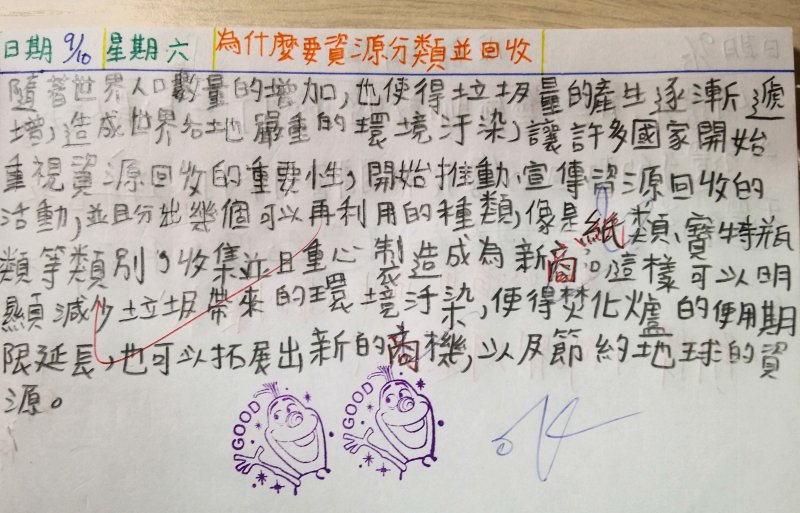 日期 9/10 星期六 為什麼要資源分類並回收
隨著世界人口數量的增加,也使得垃圾量的產生逐漸遞
增,造成世界各地嚴重的環境汙染,讓許多國家開始
重視資源回收的重要性,開始推動、宣傳資源回收的
活動,並且分出幾個可以再利用的種類,像是紙類、寶特瓶
類等類別,收集並且重心製造成為新商品。這樣可以明
顯減少垃圾帶來的環境汙染,使得焚化爐的使用期
限延長,也可以拓展出新的商機,以及節約地球的資
源。
GOOD GOOD